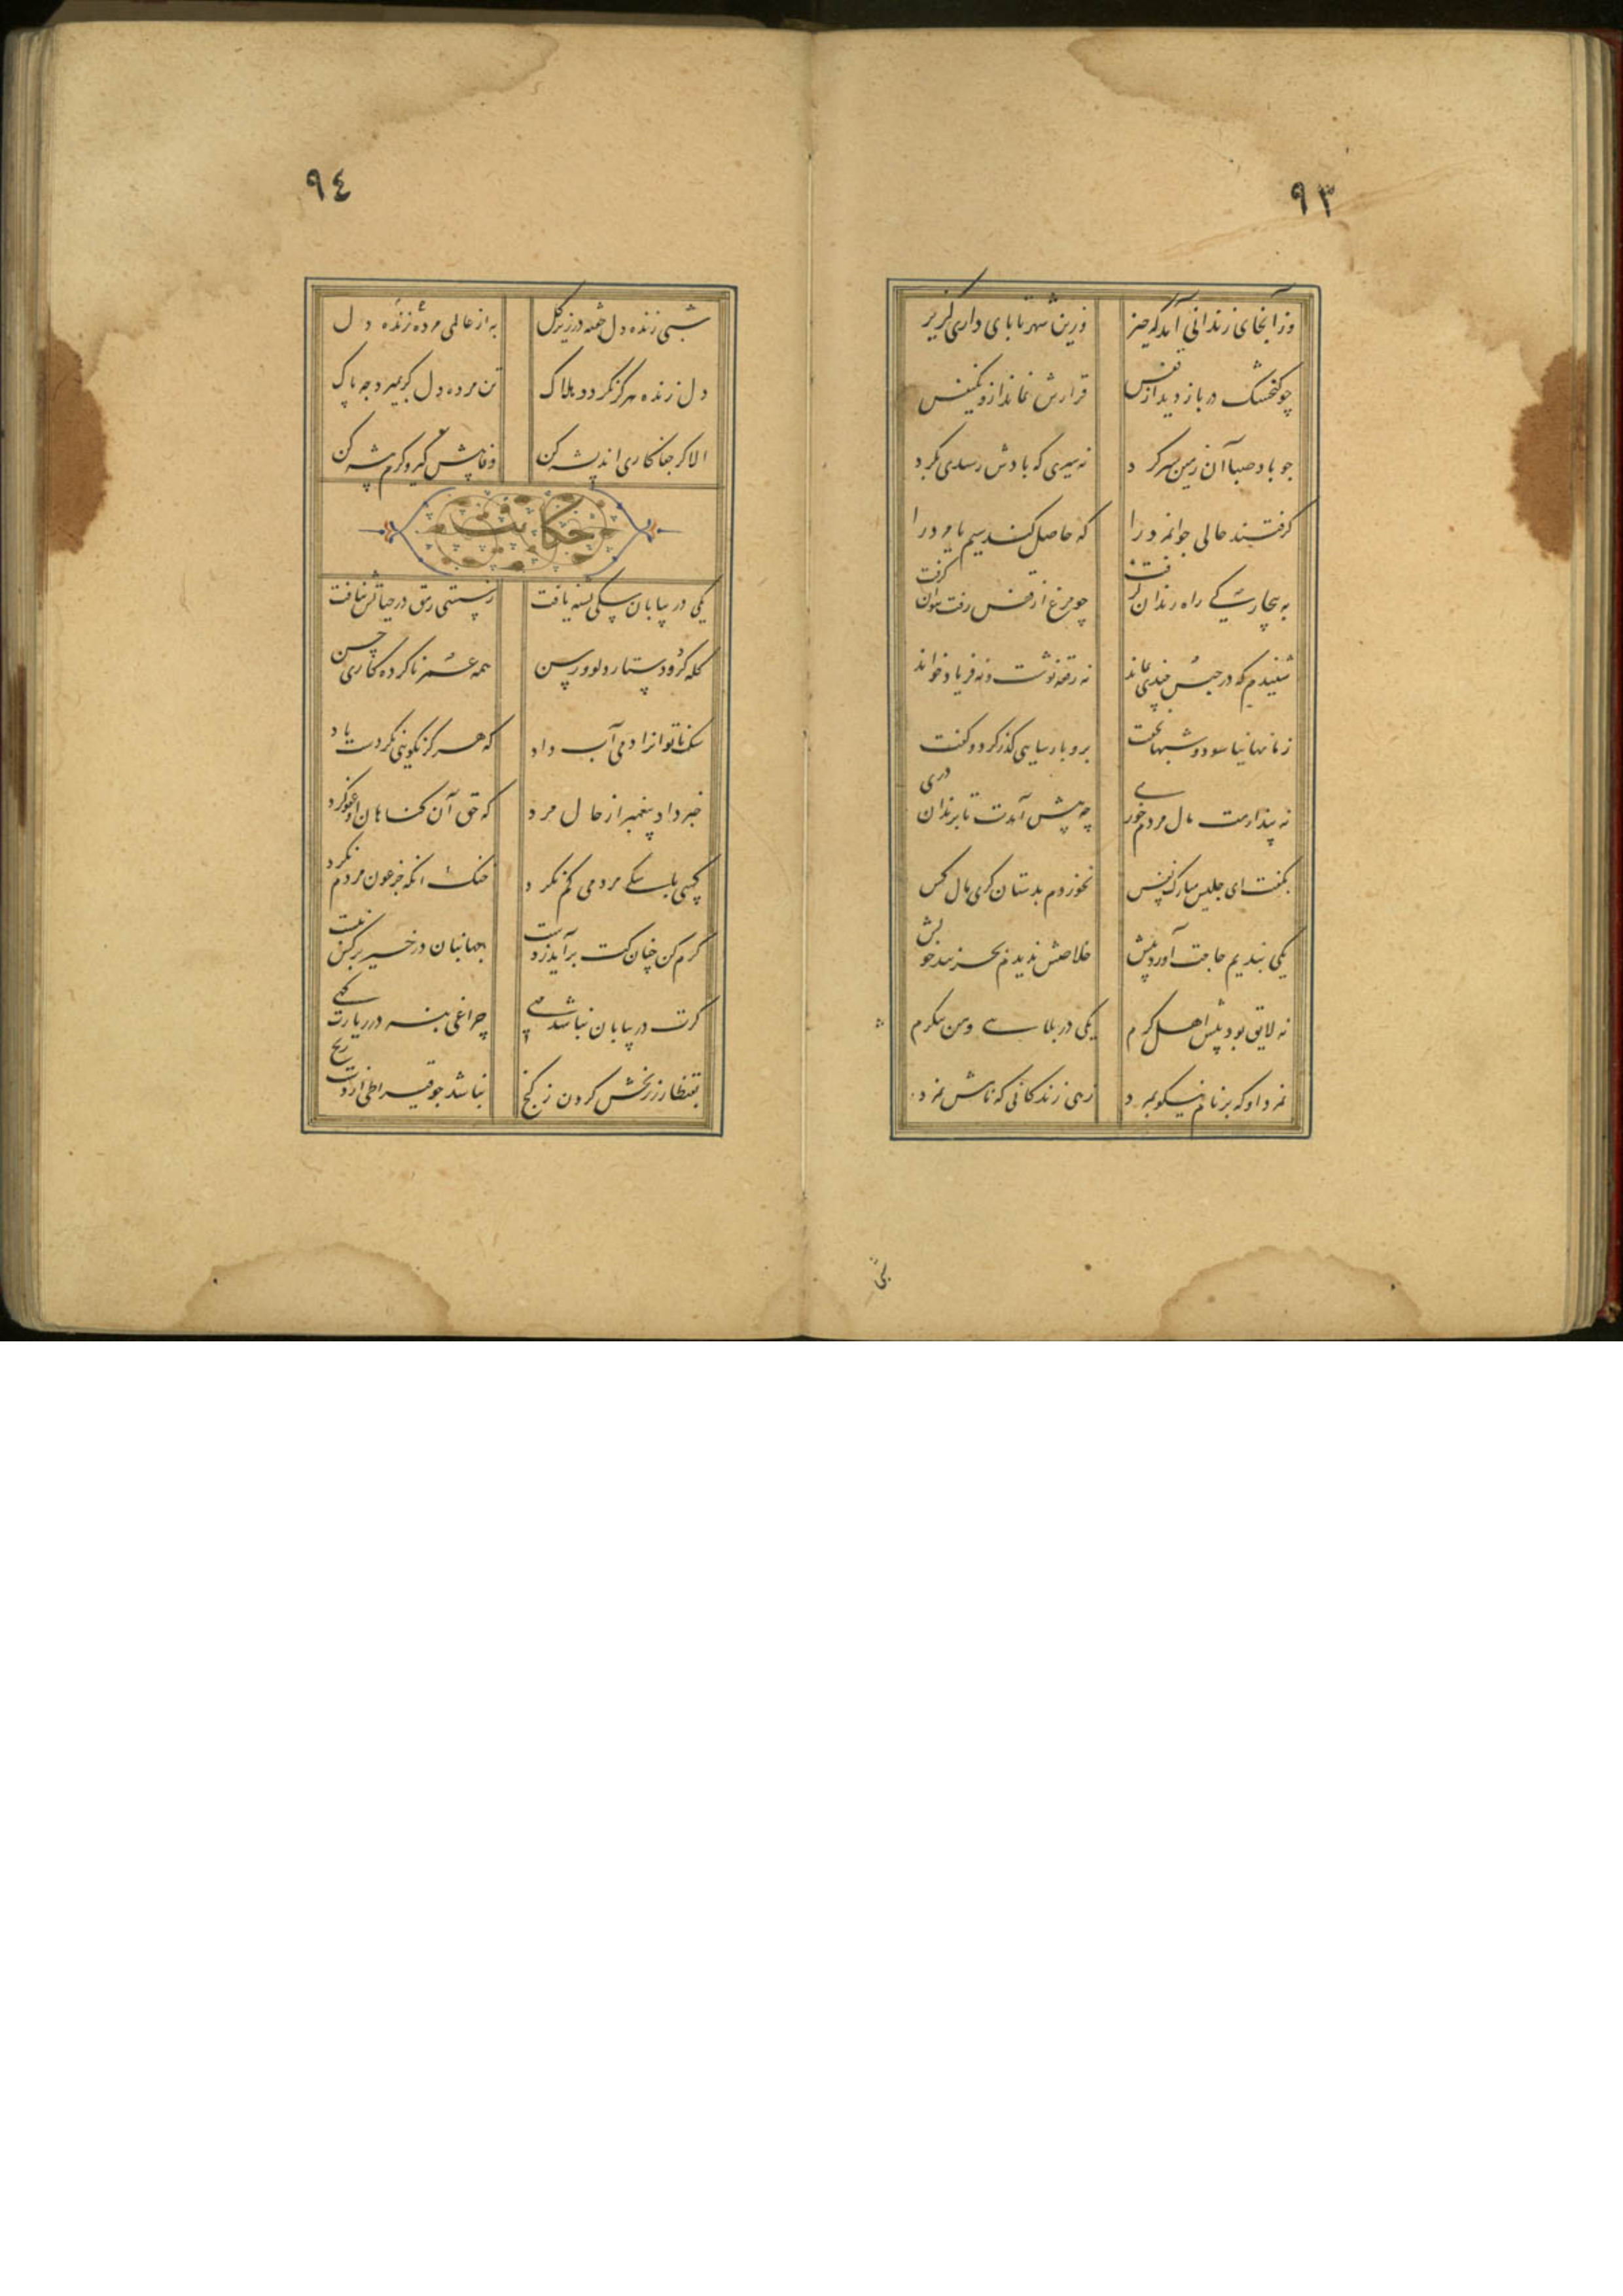 ٩٣
وز آنجای زندانی آمد که خیز
وزین شهر تا پای داری گریز
چو گنجشک در باز دید از قفس
قرارش نماند از و یکنفس
چو باد صبا آن زمین سیر کرد
نه سیری که بادش رسیدی بگرد
گرفتند حالی جوانمرد را
که حاصل کند سیم یا مرد را
به بیچارگی راه زندان گرفت
چو مرغ از قفس رفت نتوان گرفت
شنیدم که در حبس چندی بماند
نه رقعه نوشت و نه فریاد خواند
زمانها نیاسود و شبها نخفت
برو پارسایی گذر کرد و گفت
نه پندارمت مال مردم خوری
چه پیش آمدت تا بزندان دری
بگفت ای جلیس مبارک نفس
نخوردم بدستان گری مال کس
یکی بندیم حاجت آورد پیش
خلاصش ندیدم بجز بند خویش
نه لایق بود پیش اهل کرم
یکی در بلایی و من بنگرم
نمرد او که بر نام نیکو بمرد
زهی زندگانی که نامش نمرد
٩٤
شبی زنده دل خفته در زیر گل
به از عالمی مرده زنده دل
دل زنده هرگز نگردد هلاک
تن مرده دل گر بمیرد چه باک
الا گر جفاکاری اندیشه کن
وفا پیش گیر و کرم پیشه کن
حکایت
یکی در بیابان سگی تشنه یافت
ز سستی رمق در حیاتش نیافت
کله کرد و دستار دلو و رسن
همه عمر ناکرده کاری چسن
سگ ناتوانرا دمی آب داد
که هرگز نکویی نکردت یاد
خبر داد پیغمبر از حال مرد
که حق آن گناهان او عفو کرد
کسی با سگی مردمی کم نکرد
خنک آنکه جز عون مردم نکرد
کرم کن چنان کت برآید ز دست
جهانبان در خیر بر کس نبست
گرت در بیابان نباشد چهی
چراغی بنه در زیارت گهی
بقنطار زر بخش کردن ز گنج
نباشد چو قیراطی از دست رنج